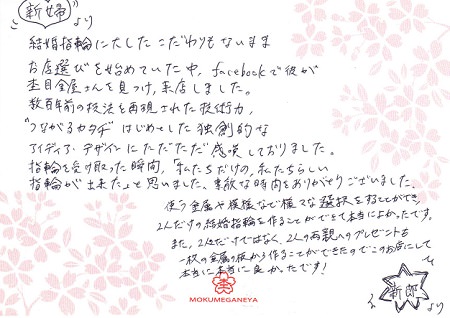 新婦より
結婚指輪に大したこだわりもないまま
お店選びを始めていた中、facebookで彼が
杢目金屋さんを見つけ、来店しました。
数百年前の技法を再現された技術力、
"つながるカタチ"はじめとした独創的な
アイディア・デザインにただただ感嘆しておりました。
指輪を受け取った瞬間、「私たちだけの、私たちらしい
指輪が出来た。」と思いました。素敵な時間をありがとうございました。
使う金属や模様など様々な選択をすることができ、
2人だけの結婚指輪を作ることができて本当によかったです。
また、2人だけではなく、2人の両親へのプレゼントも
一枚の金属の板から作ることができたのでこのお店にして
本当に本当に良かったです!
新郎より
MOKUMEGANEYA